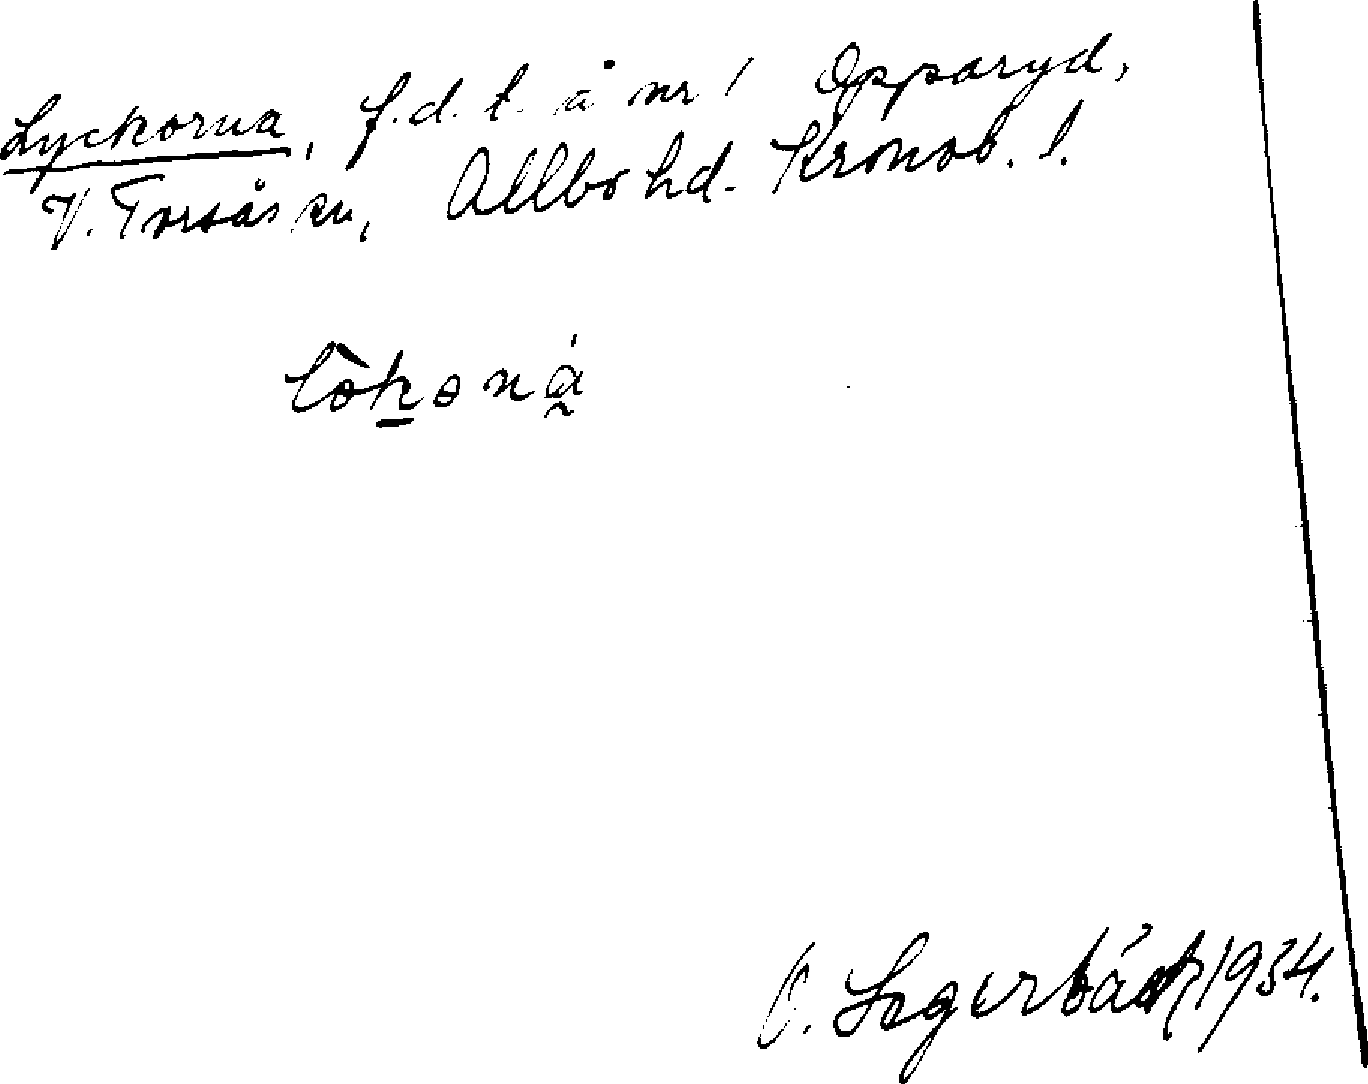 Lyckorna, f.d.t. å nr 1 Opparyd,
V. Torsås sn, Allbo hd. Kronob. l.
O. Segerbäck 1934.